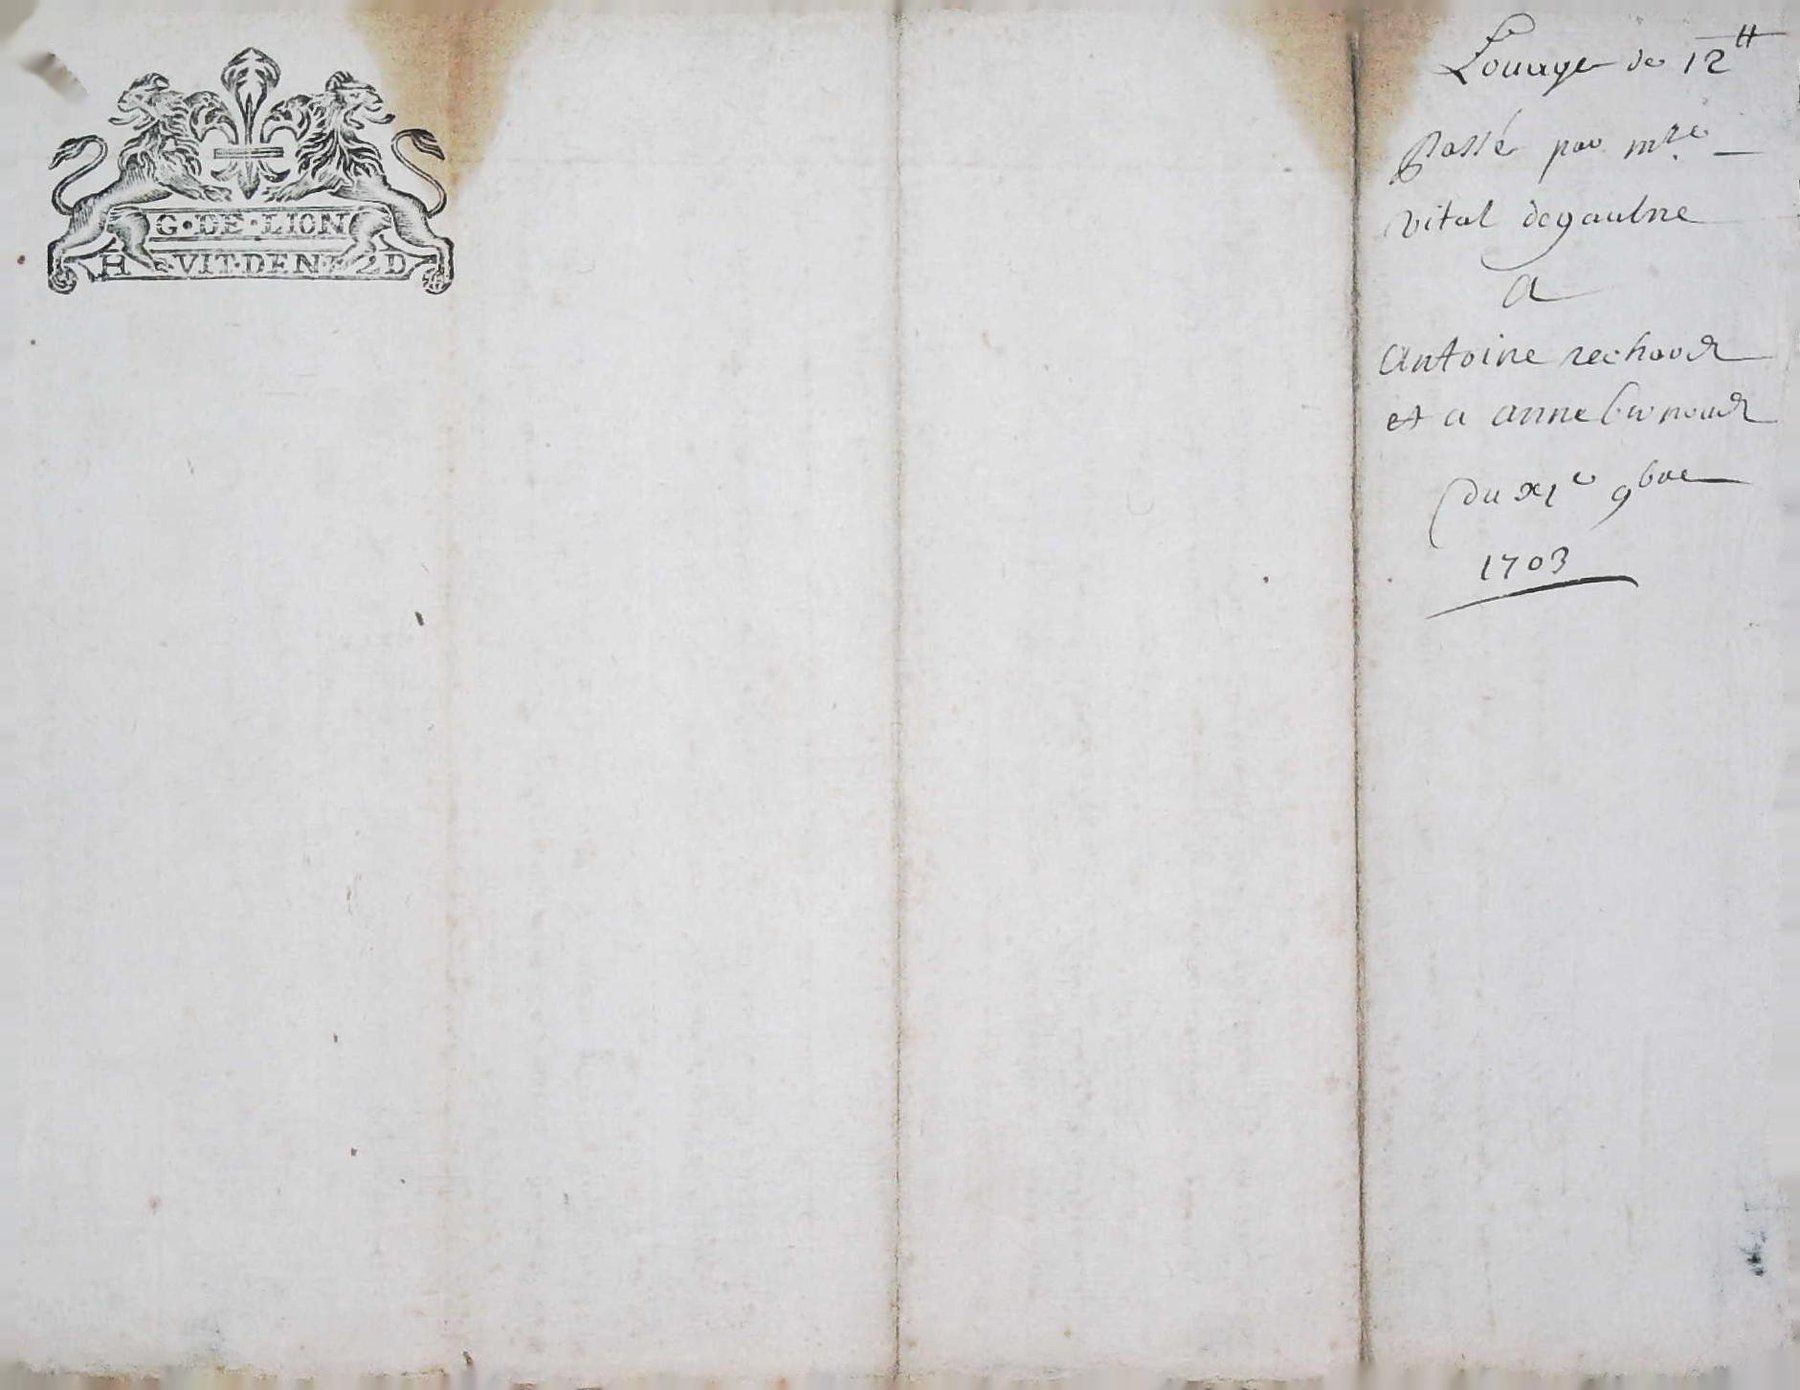 G·DE·LION
H VIT·DEN· 2D
Louage de 12tt
Passé par mre
vital degaulne
a
Antoine rechaud
et a anne
du xie 9bre
1703